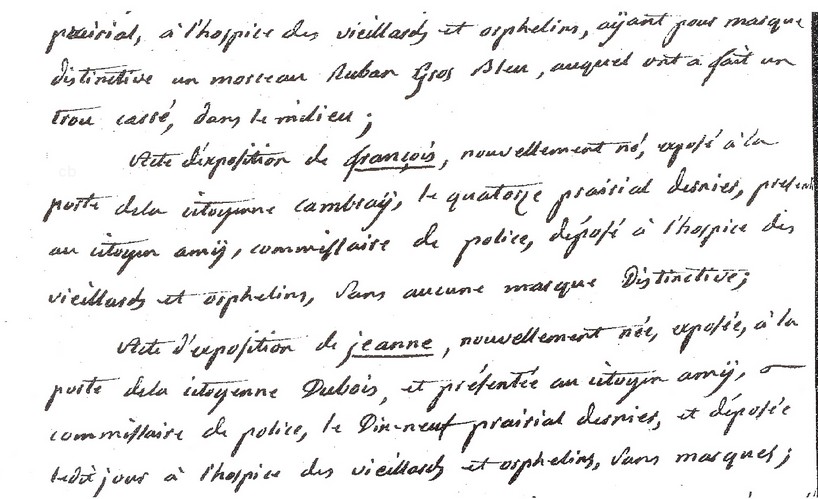 prairial, à l'hospice des vieillards et orphelins, ayant pour marque
distinctive un morceau Ruban Gros Bleu, auquel ont a fait un
trou carré, dans le milieu;
Acte d'exposition de françois, nouvellement né, exposé à la
porte dela citoyenne cambraÿ, le quatorze prairial dernier, présenté
au citoyen amÿ, commissaire de police, déposé à l'hospice des
vieillards et orphelins, Sans aucune marque Distinctive;
Acte d'exposition de jeanne, nouvellement née, exposée, à la
porte dela citoyenne Dubois, et présentée au citoyen amÿ,
commissaire de police, le Dix-neuf prairial dernier, et déposée
ledit jour à l'hospice des vieillards et orphelins, Sans marques;